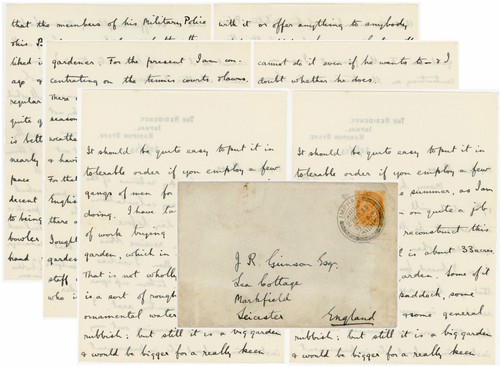 that the members of his Military Police
liked i
ago &
regular
quite g
is bett
nearly
pace
decent
to being
bowler
hand
with it or offer anything to anybody
gardener. For the present I am con-
centrating on the tennis courts & lawns.
There
season
weath
& havi
For that
Englis
there a
I ought
garden
staff
who i
cannot do it even if he wants to & I
doubt whether he does.
THE RESIDENCY
It should be quite easy to put it in
tolerable order if you employ a few
gangs of men for
doing. I have ta
of work buying
garden, which in
that is not wholl
is a sort of rough
ornamental water
rubbish; but still it is a big garden
& would be bigger for a really keen
THE RESIDENCY
It should be quite easy to put it in
tolerable order if you employ a few
e summer, as I am
on quite a job
reconstruct this
l is about 33 acres.
arden. Some of it
addock, some
& some general
rubbish; but still it is a big garden
& would be bigger for a really keen
J. R. Gunson Esq.
Lea Cottage
Markfield
Leicester
England